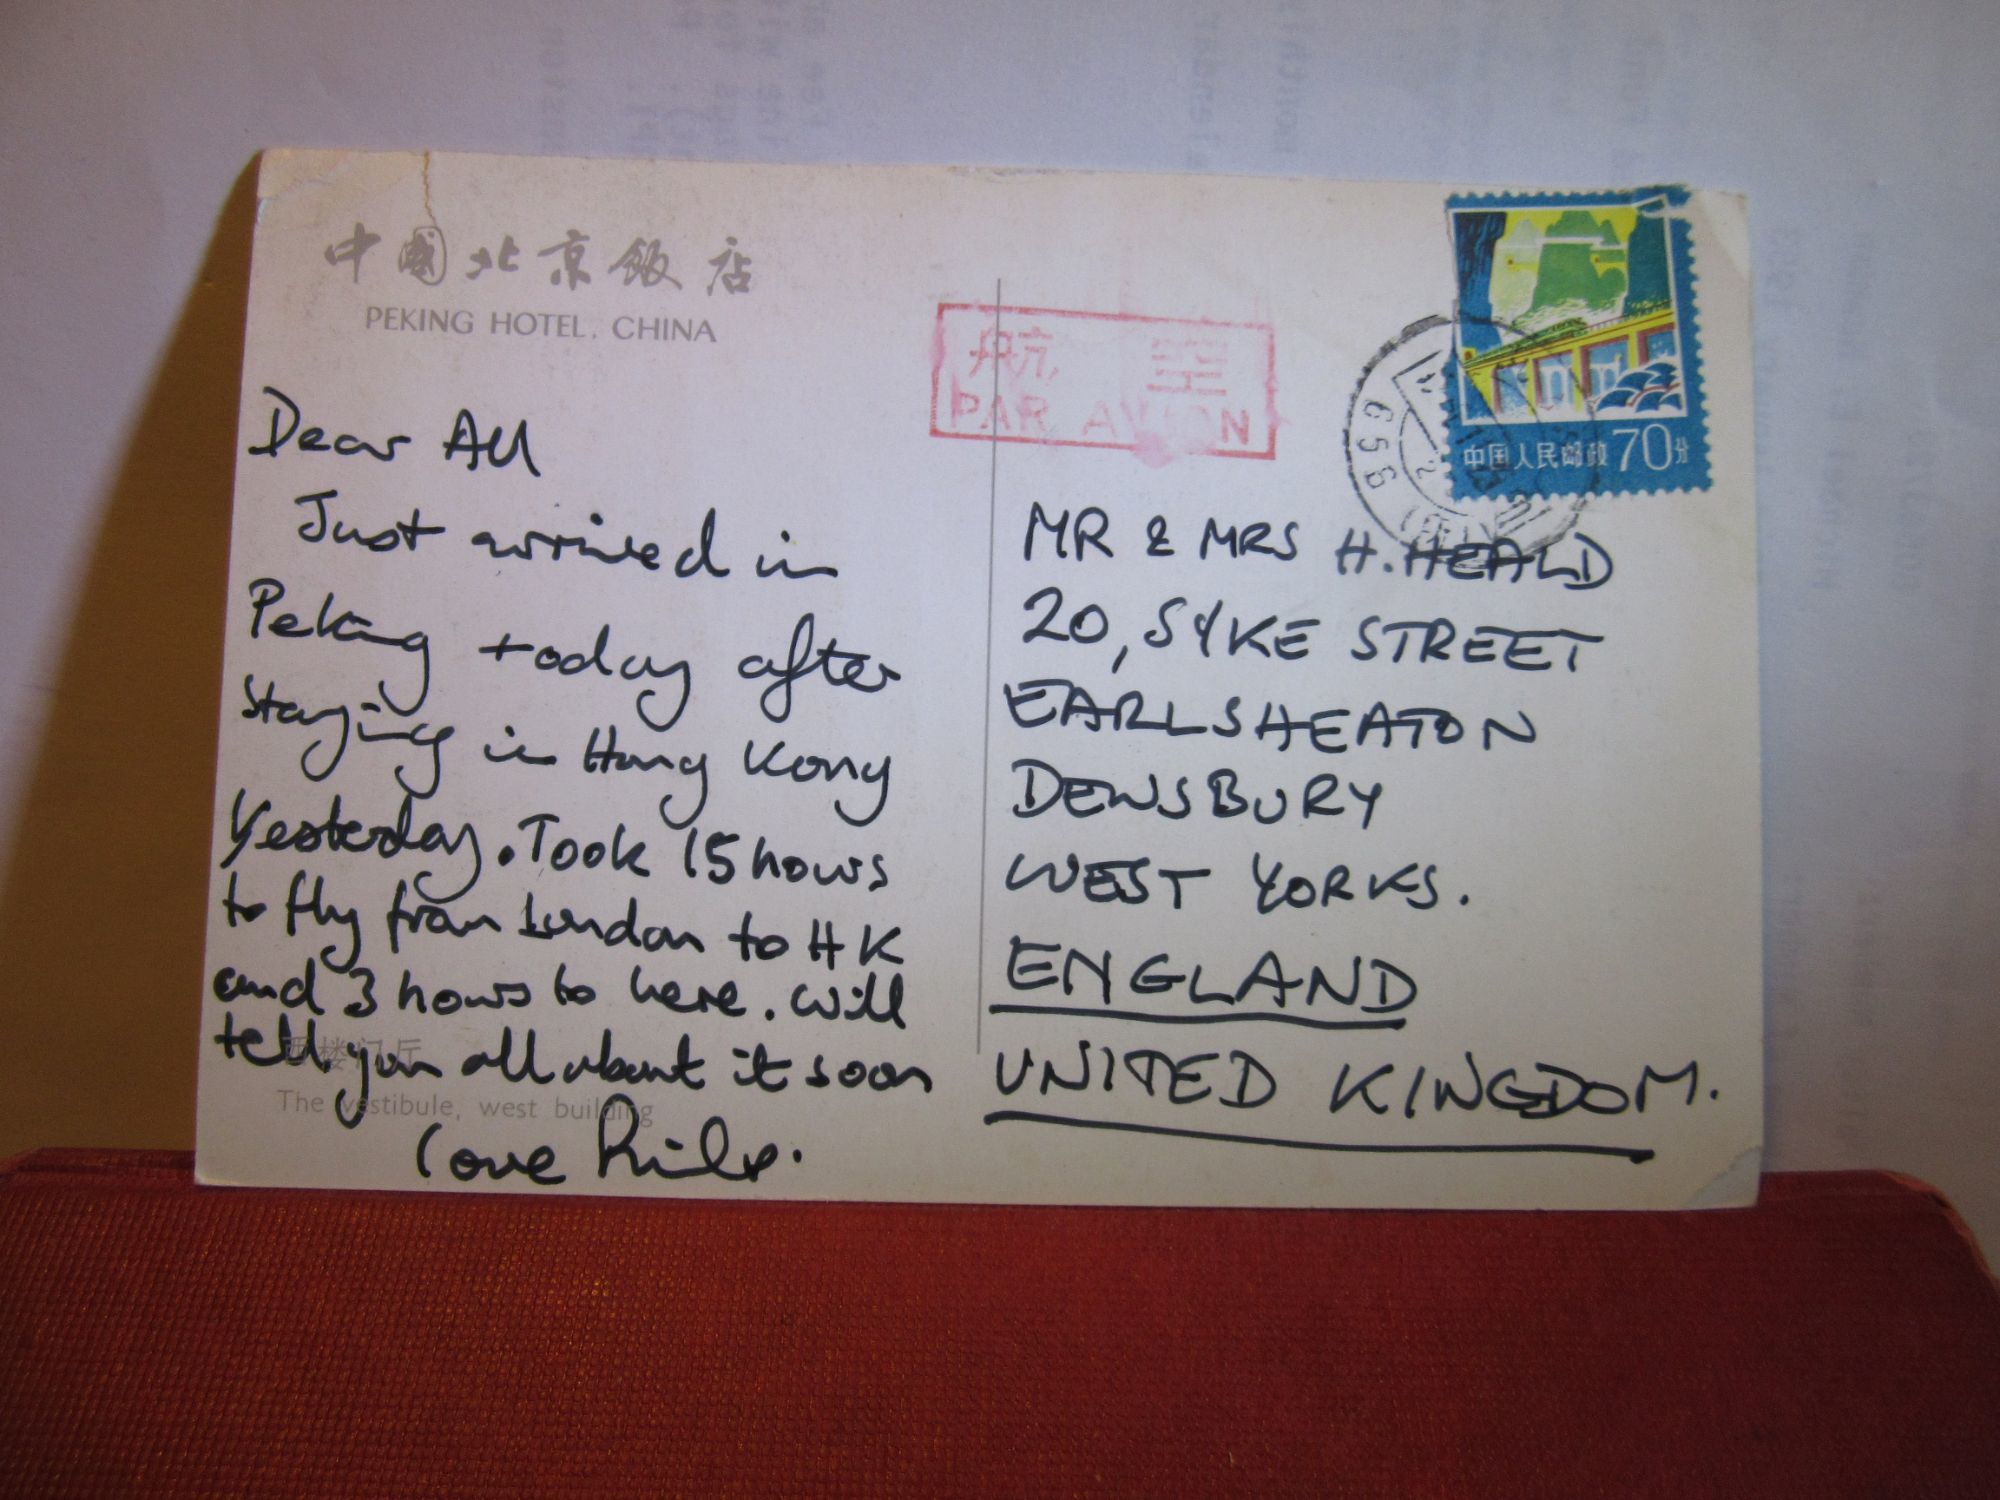 中國北京飯店
PEKING HOTEL. CHINA
航空
PAR AVION
中国人民邮政 70分
6 5 5 6
Dear All
Just arrived in
Peking today after
staying in Hong Kong
Yesterday. Took 15 hours
to fly from London to HK
and 3 hours to here. Will
tell you all about it soon
love
西楼门厅
The vestibule, west building
MR & MRS H. HEALD
20, SYKE STREET
EARLSHEATON
DEWSBURY
WEST YORKS.
ENGLAND
UNITED KINGDOM.